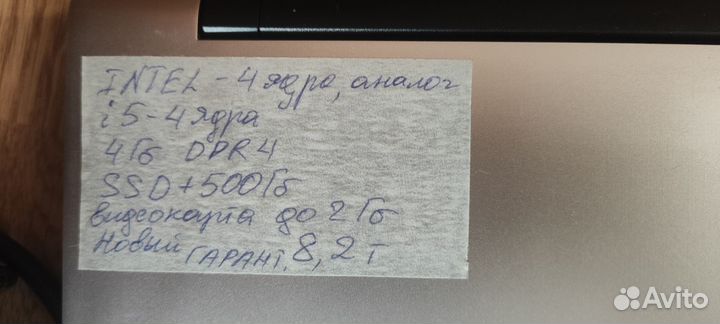 INTEL - 4 ядра, аналог
i5 - 4 ядра
4Гб DDR4
SSD + 500Гб
видеокарта до 2Гб
Новый ГАРАНТ. 8,2 т
Avito